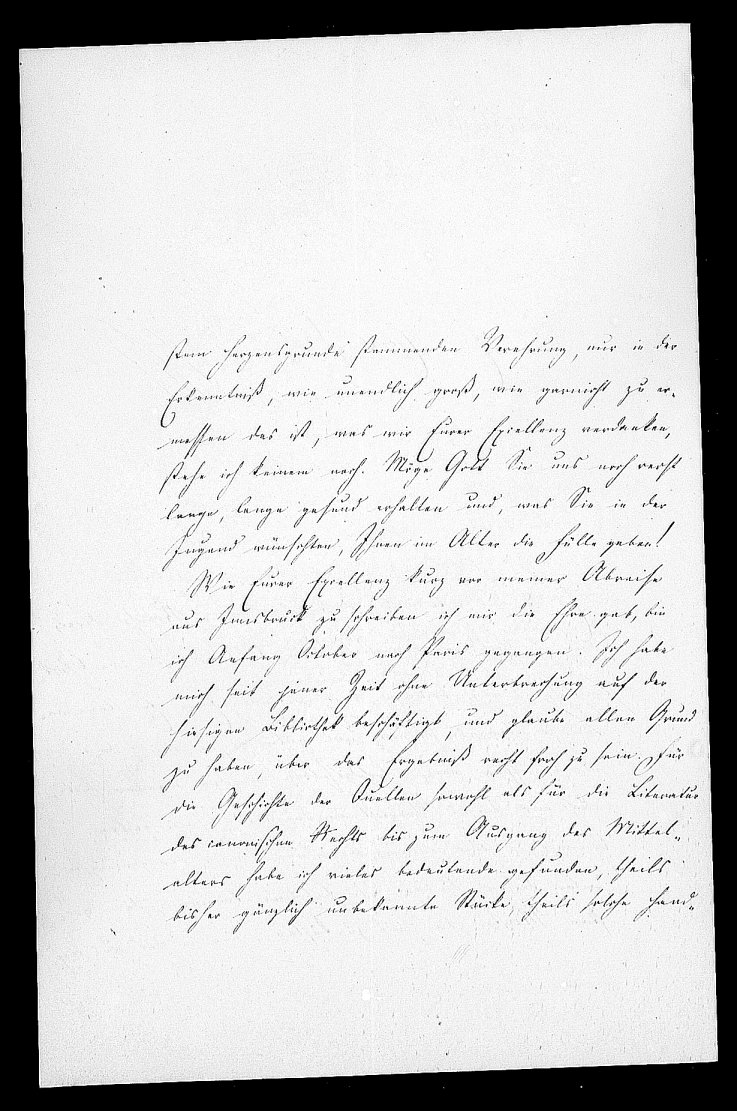 stem Herzensgrunde stammenden Verehrung, nur in der
Erkenntniß, wie unendlich groß, wie garnicht zu er-
messen das ist, was wir Eurer Excellenz verdanken,
stehe ich keinem nach. Möge Gott Sie uns noch recht
lange, lange gesund erhalten und, was Sie in der
Jugend wünschten, Ihnen im Alter die Fülle geben!
Wie Eurer Excellenz kurz vor meiner Abreise
aus Innsbruck zu schreiben ich mir die Ehre gab, bin
ich Anfang October nach Paris gegangen. Ich habe
mich seit jener Zeit ohne Unterbrechung auf der
hiesigen Bibliothek beschäftigt, und glaube allen Grund
zu haben, über das Ergebniß recht froh zu sein. Für
die Geschichte der Quellen sowohl als für die Literatur
des canonischen Rechts bis zum Ausgang des Mittel-
alters habe ich vieles bedeutende gefunden, theils
bisher gänzlich unbekannte Stücke, theils solche hand-